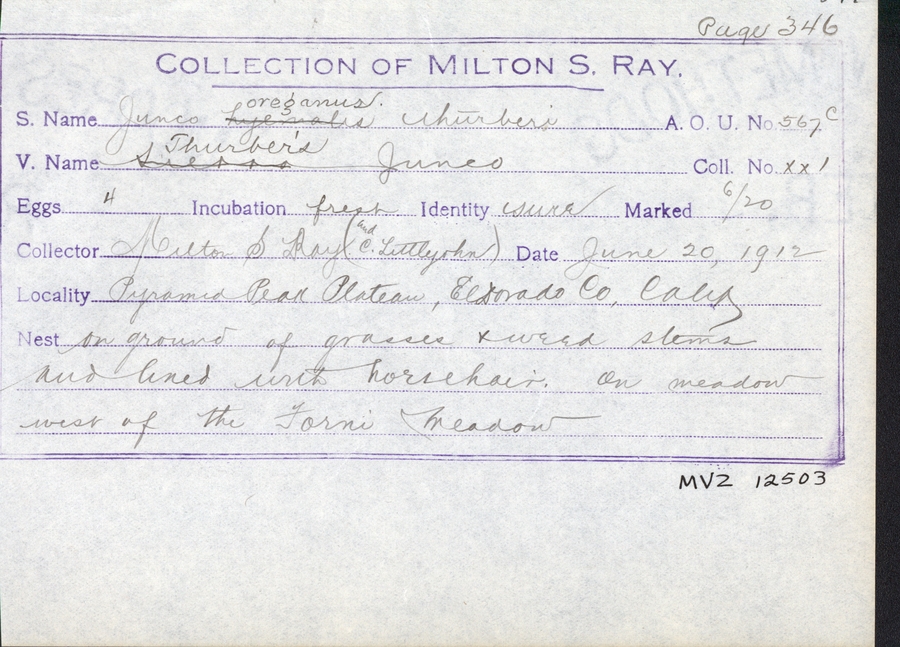 Page 346
COLLECTION OF MILTON S. RAY.
oreganus.
S. Name Junco hyemalis thurberi A. O. U. No. 567c
Thurber's
V. Name Sierra Junco Coll. No. xx1
Eggs 4 Incubation fresh Identity sure Marked 6/20
Collector Milton S Ray (and C. Littlejohn) Date June 20, 1912
Locality Pyramid Peak Plateau, Eldorado Co, Calif
Nest on ground of grasses & weed stems
and lined with horsehair. On meadow
west of the Forni Meadow
MVZ 12503